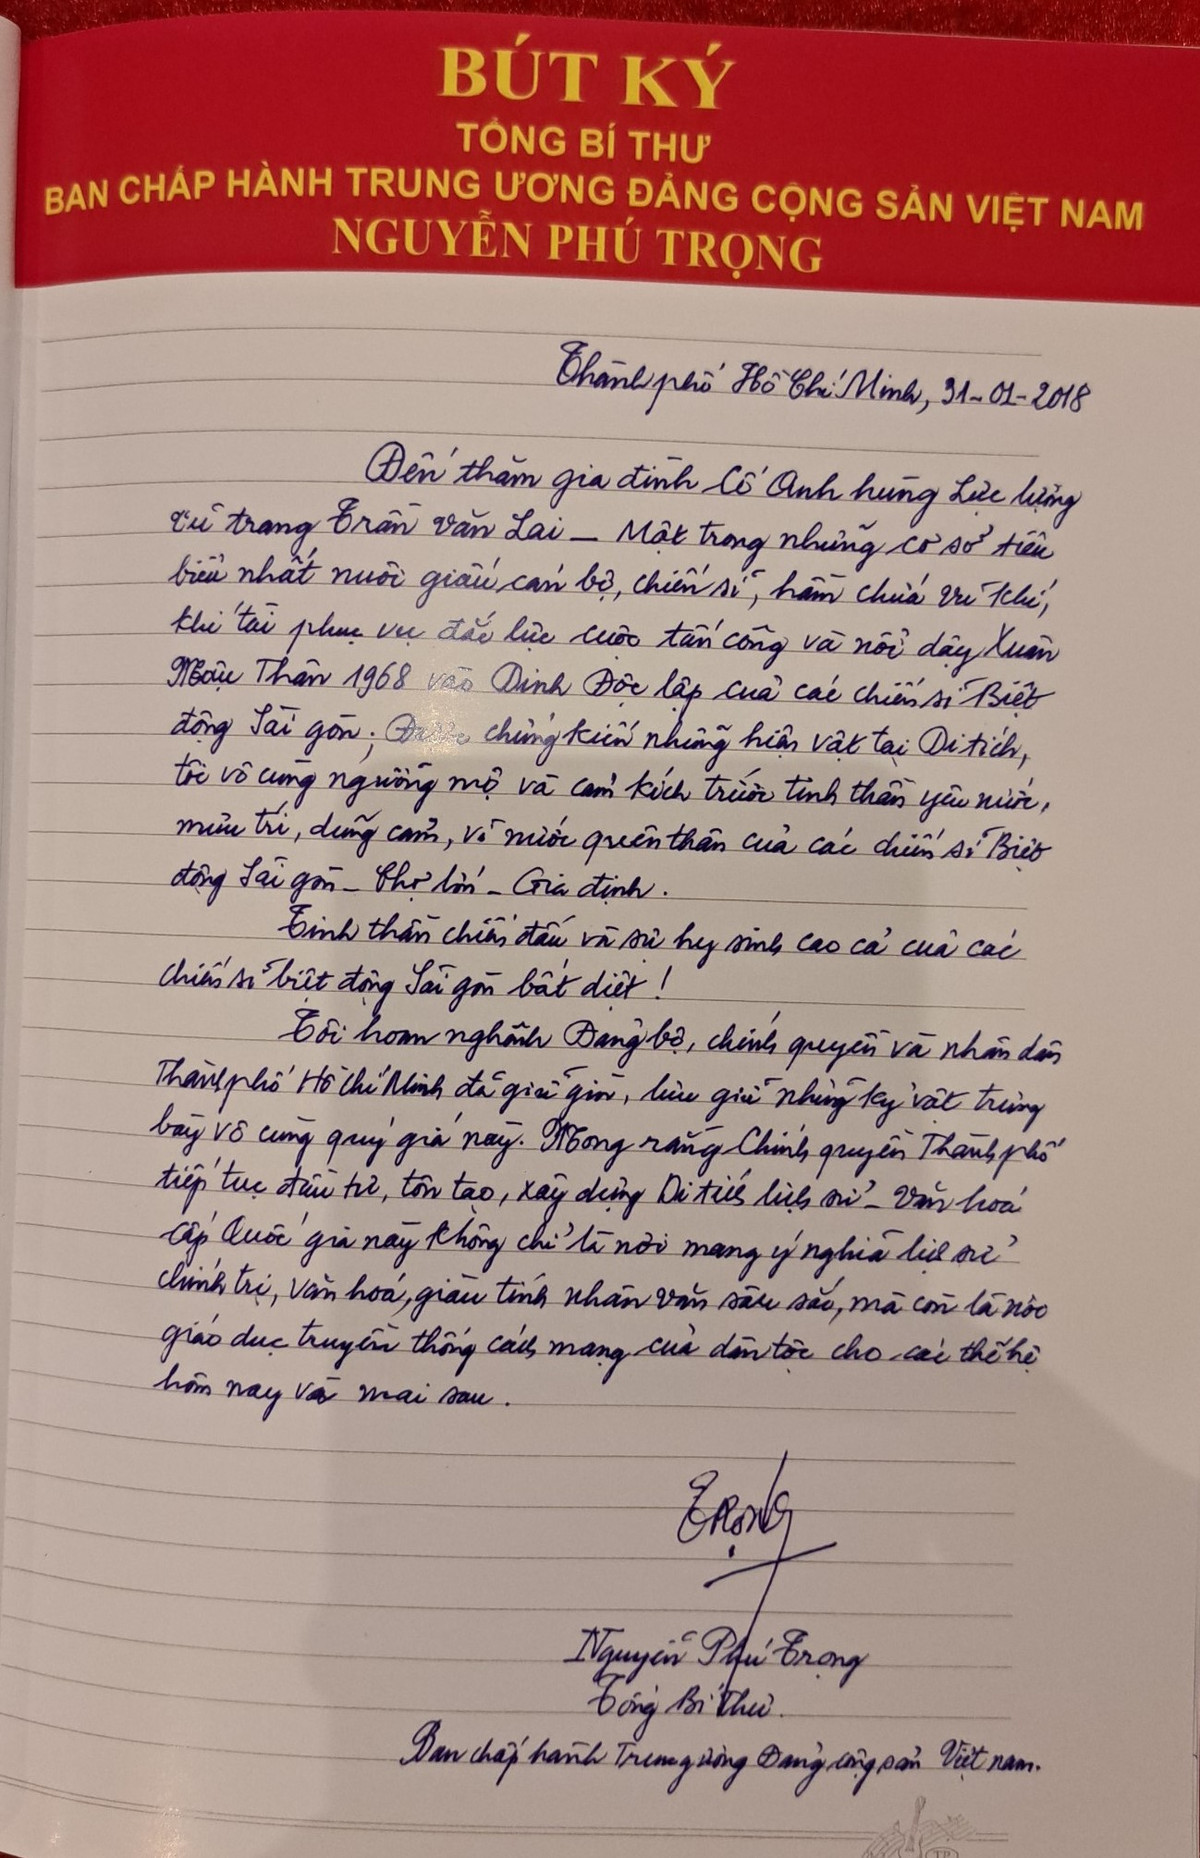 BÚT KÝ
TỔNG BÍ THƯ
BAN CHẤP HÀNH TRUNG ƯƠNG ĐẢNG CỘNG SẢN VIỆT NAM
NGUYỄN PHÚ TRỌNG
Thành phố Hồ Chí Minh, 31-01-2018
Đến thăm gia đình Cố Anh hùng Lực lượng
vũ trang Trần Văn Lai – Một trong những cơ sở tiêu
biểu nhất nuôi giấu cán bộ, chiến sĩ, hầm chứa vũ khí,
khí tài phục vụ đắc lực cuộc tấn công và nổi dậy Xuân
Mậu Thân 1968 vào Dinh Độc lập của các chiến sĩ Biệt
động Sài gòn; Được chứng kiến những hiện vật tại Di tích,
tôi vô cùng ngưỡng mộ và cảm kích trước tinh thần yêu nước,
mưu trí, dũng cảm, vì nước quên thân của các chiến sĩ Biệt
động Sài gòn – Chợ lớn – Gia định.
Tinh thần chiến đấu và sự hy sinh cao cả của các
chiến sĩ biệt động Sài gòn bất diệt!
Tôi hoan nghênh Đảng bộ, chính quyền và nhân dân
Thành phố Hồ Chí Minh đã giữ gìn, lưu giữ những kỷ vật trưng
bày vô cùng quý giá này. Mong rằng Chính quyền Thành phố
tiếp tục đầu tư, tôn tạo, xây dựng Di tích lịch sử – Văn hoá
cấp Quốc gia này không chỉ là nơi mang ý nghĩa lịch sử
chính trị, văn hoá, giàu tính nhân văn sâu sắc, mà còn là nơi
giáo dục truyền thống cách mạng của dân tộc cho các thế hệ
hôm nay và mai sau.
Trọng
Nguyễn Phú Trọng
Tổng Bí Thư.
Ban chấp hành Trung ương Đảng cộng sản Việt nam.